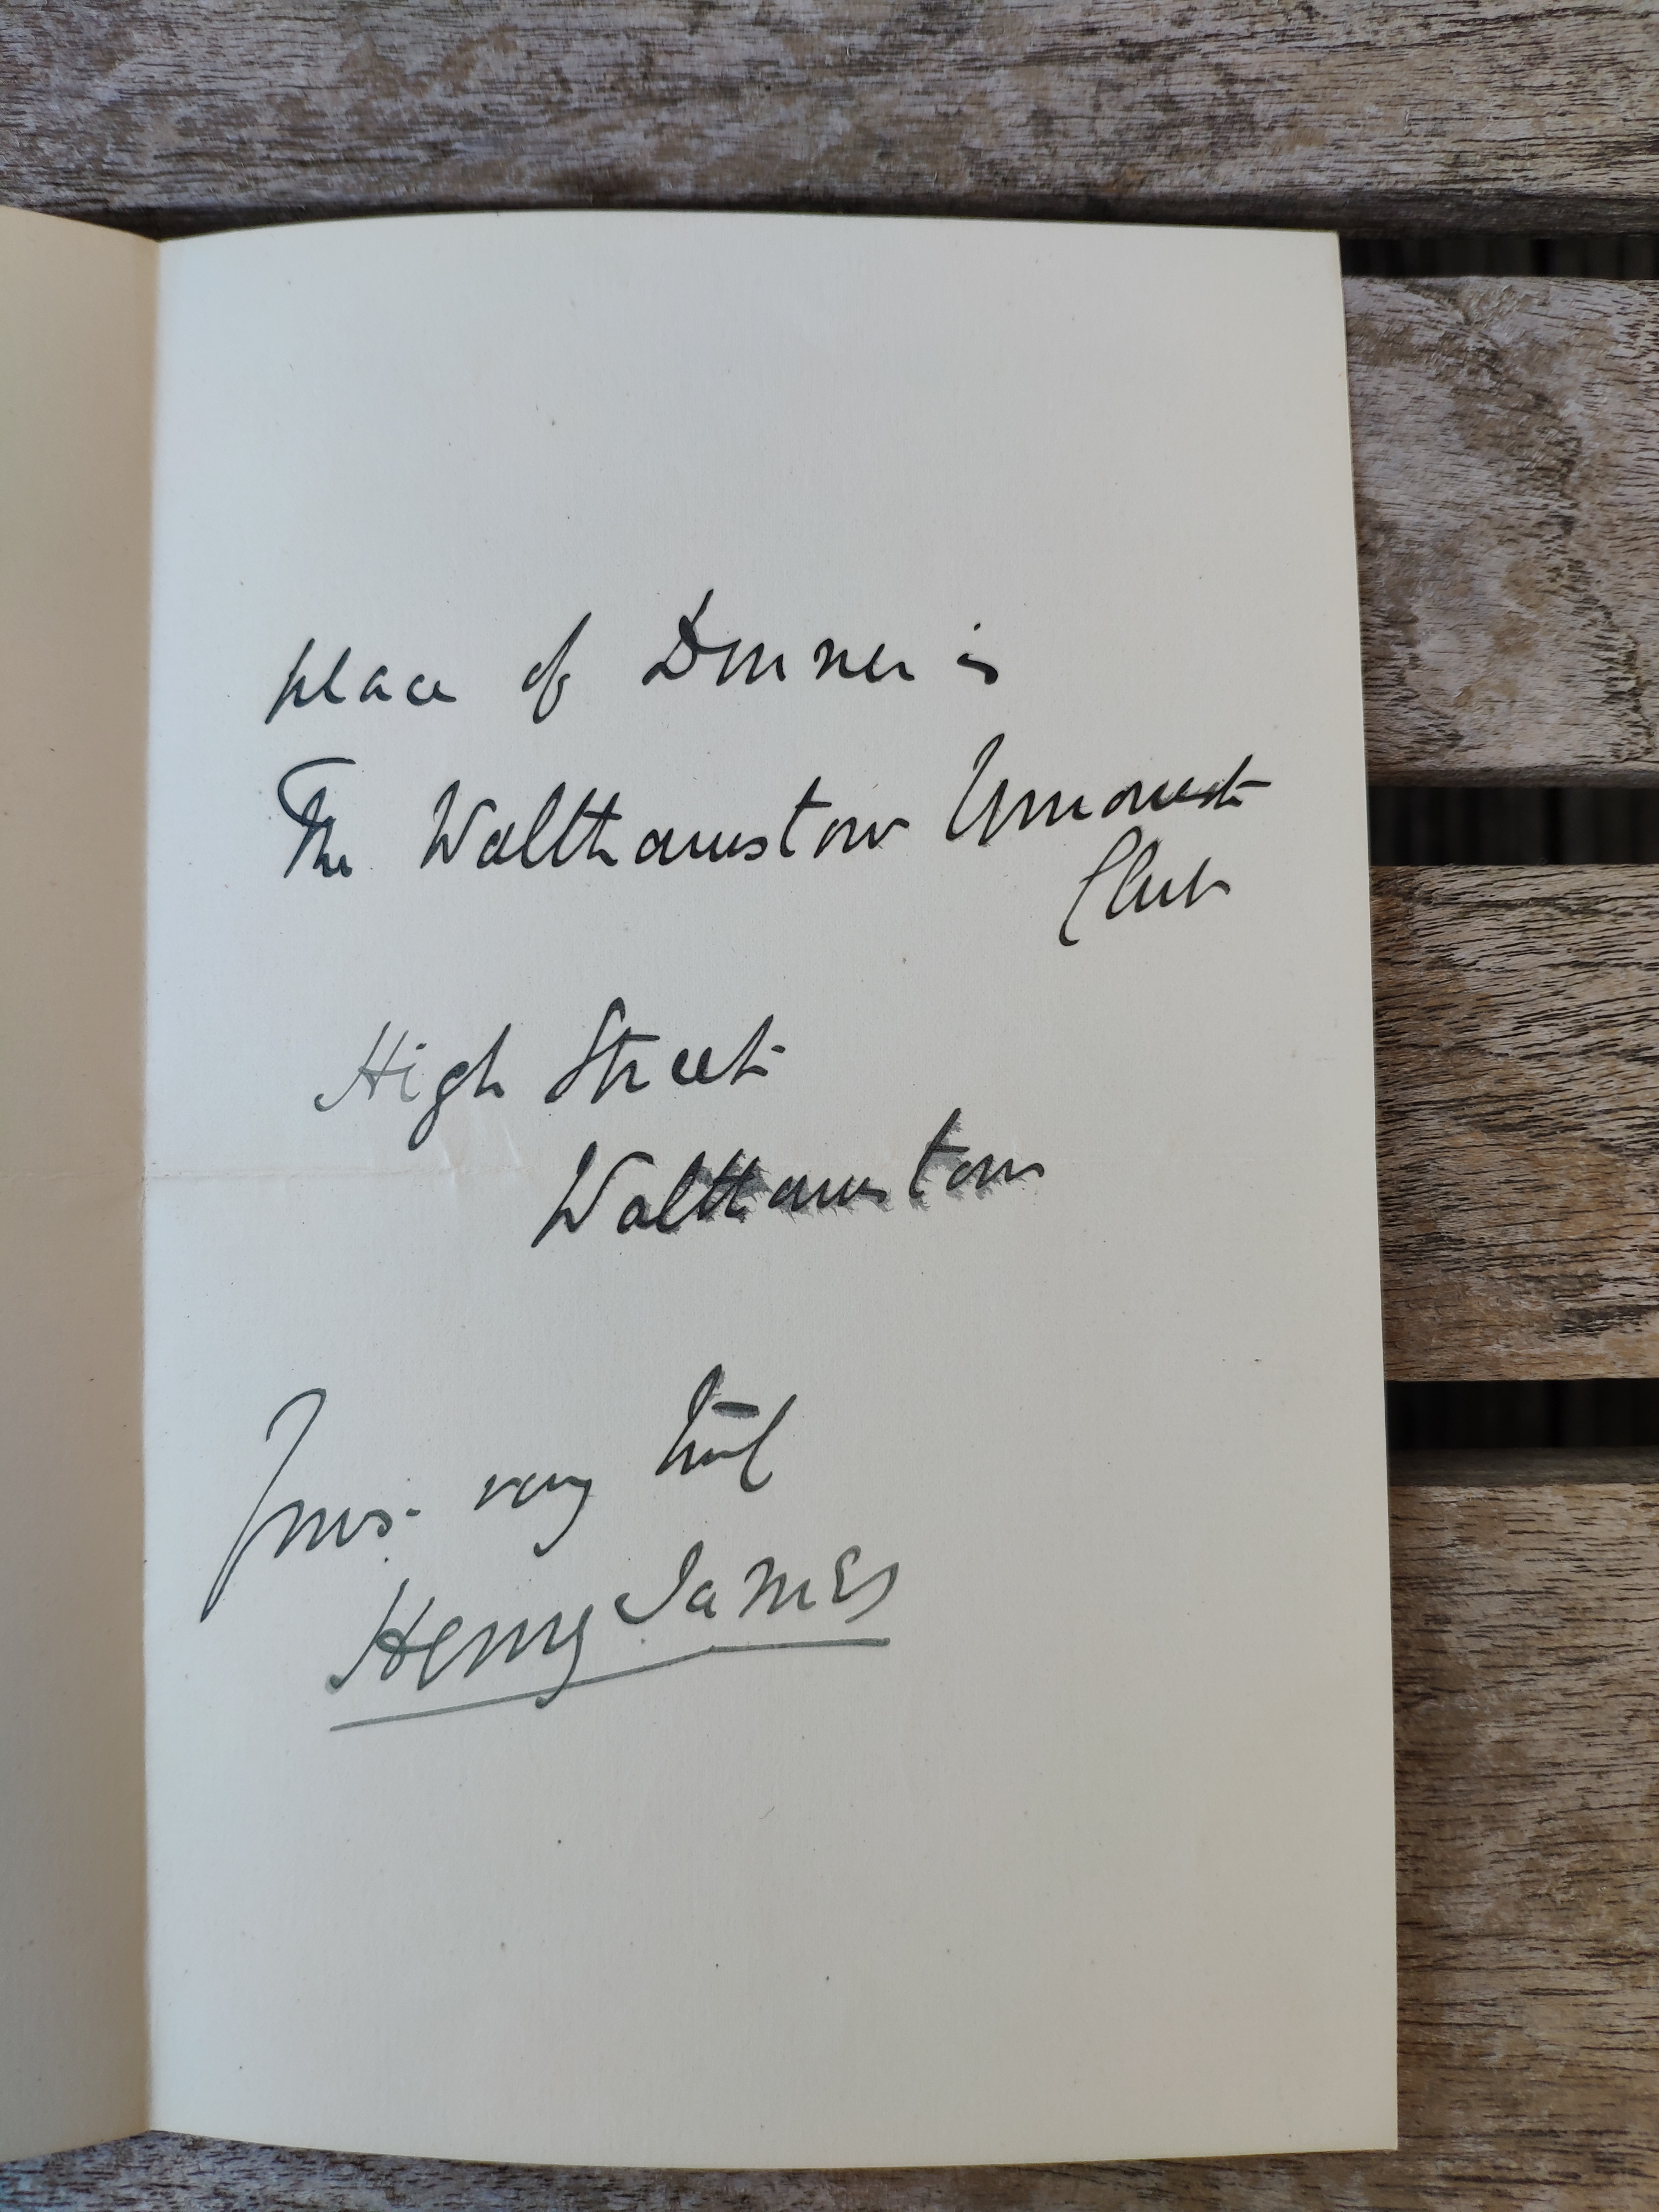 place of Dinner is
The Walthamstow Unionist
Club
High Street
Walthamstow
Yours very truly
Henry James